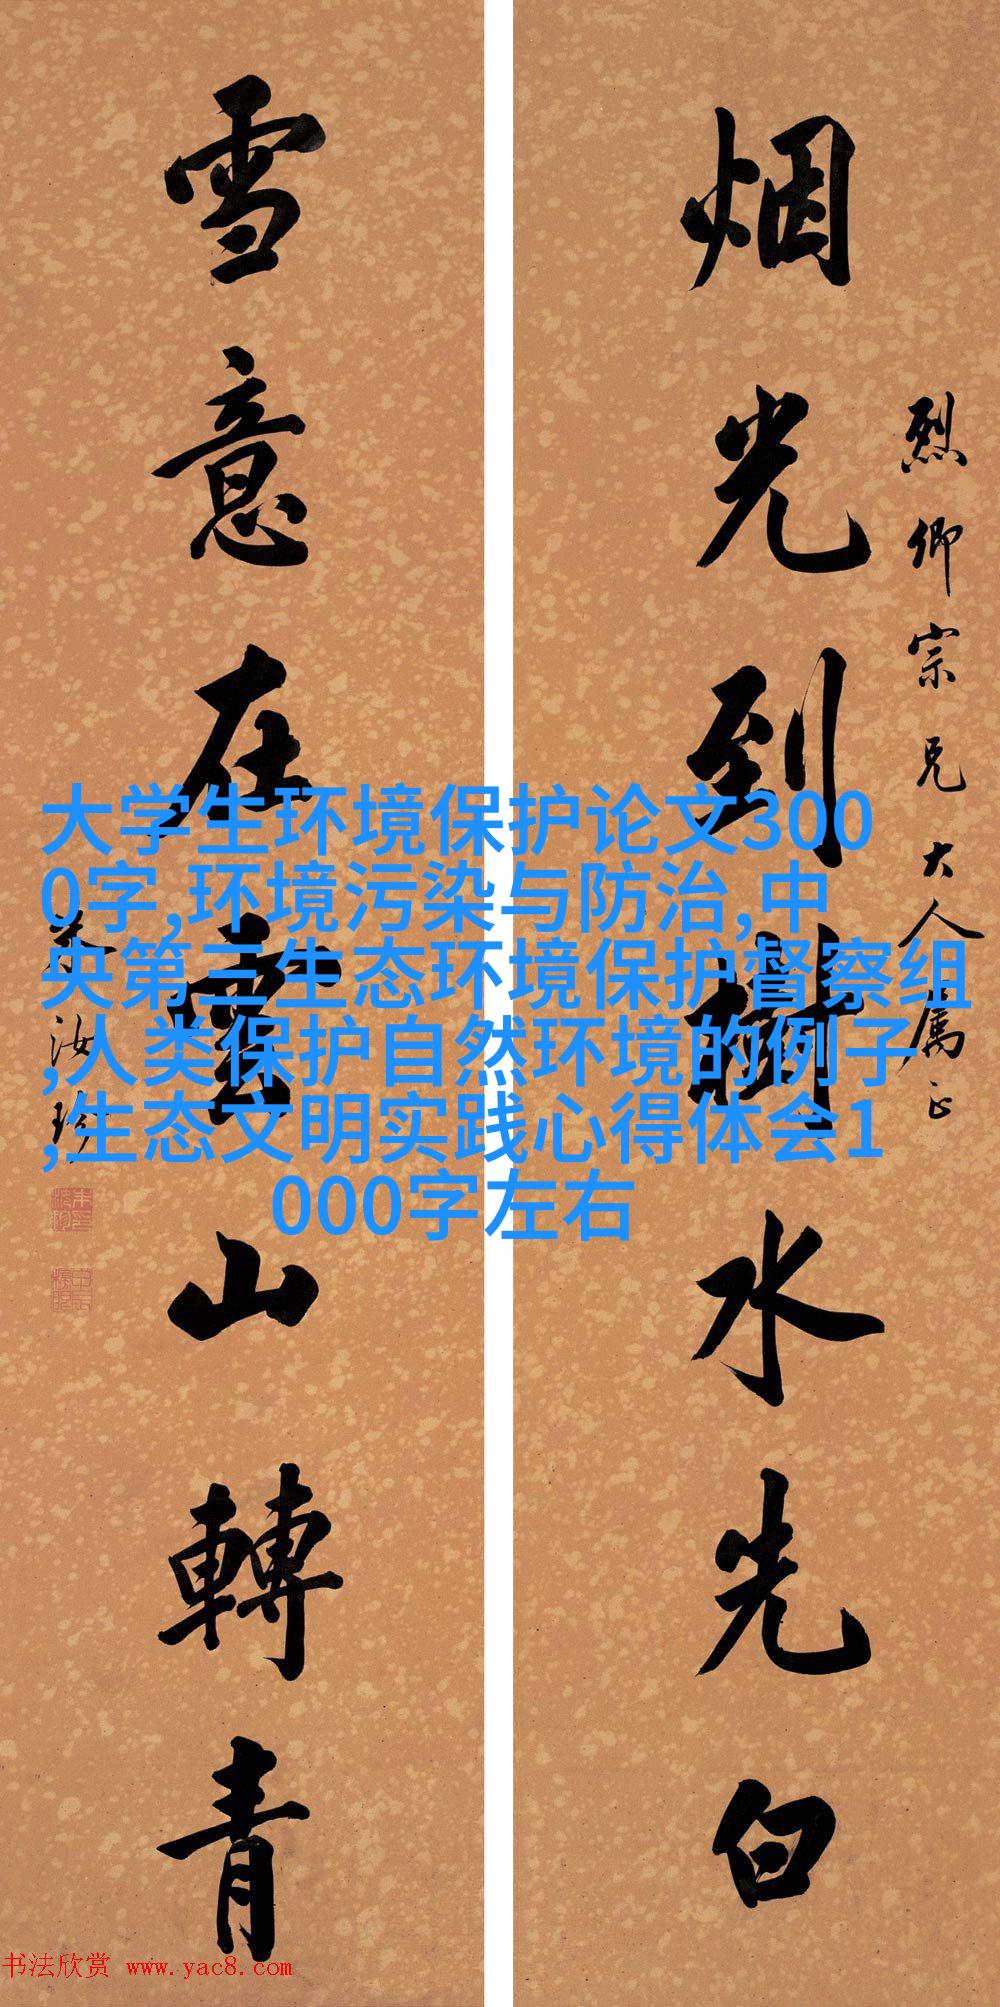 烈卿宗兄大人属正
烟光到樹水先白
雪意在雲山轉青
汝珍
大学生环境保护论文300
0字,环境污染与防治,中
央第三生态环境保护督察组
,人类保护自然环境的例子
,生态文明实践心得体会1
000字左右
书法欣赏 www.yac8.com